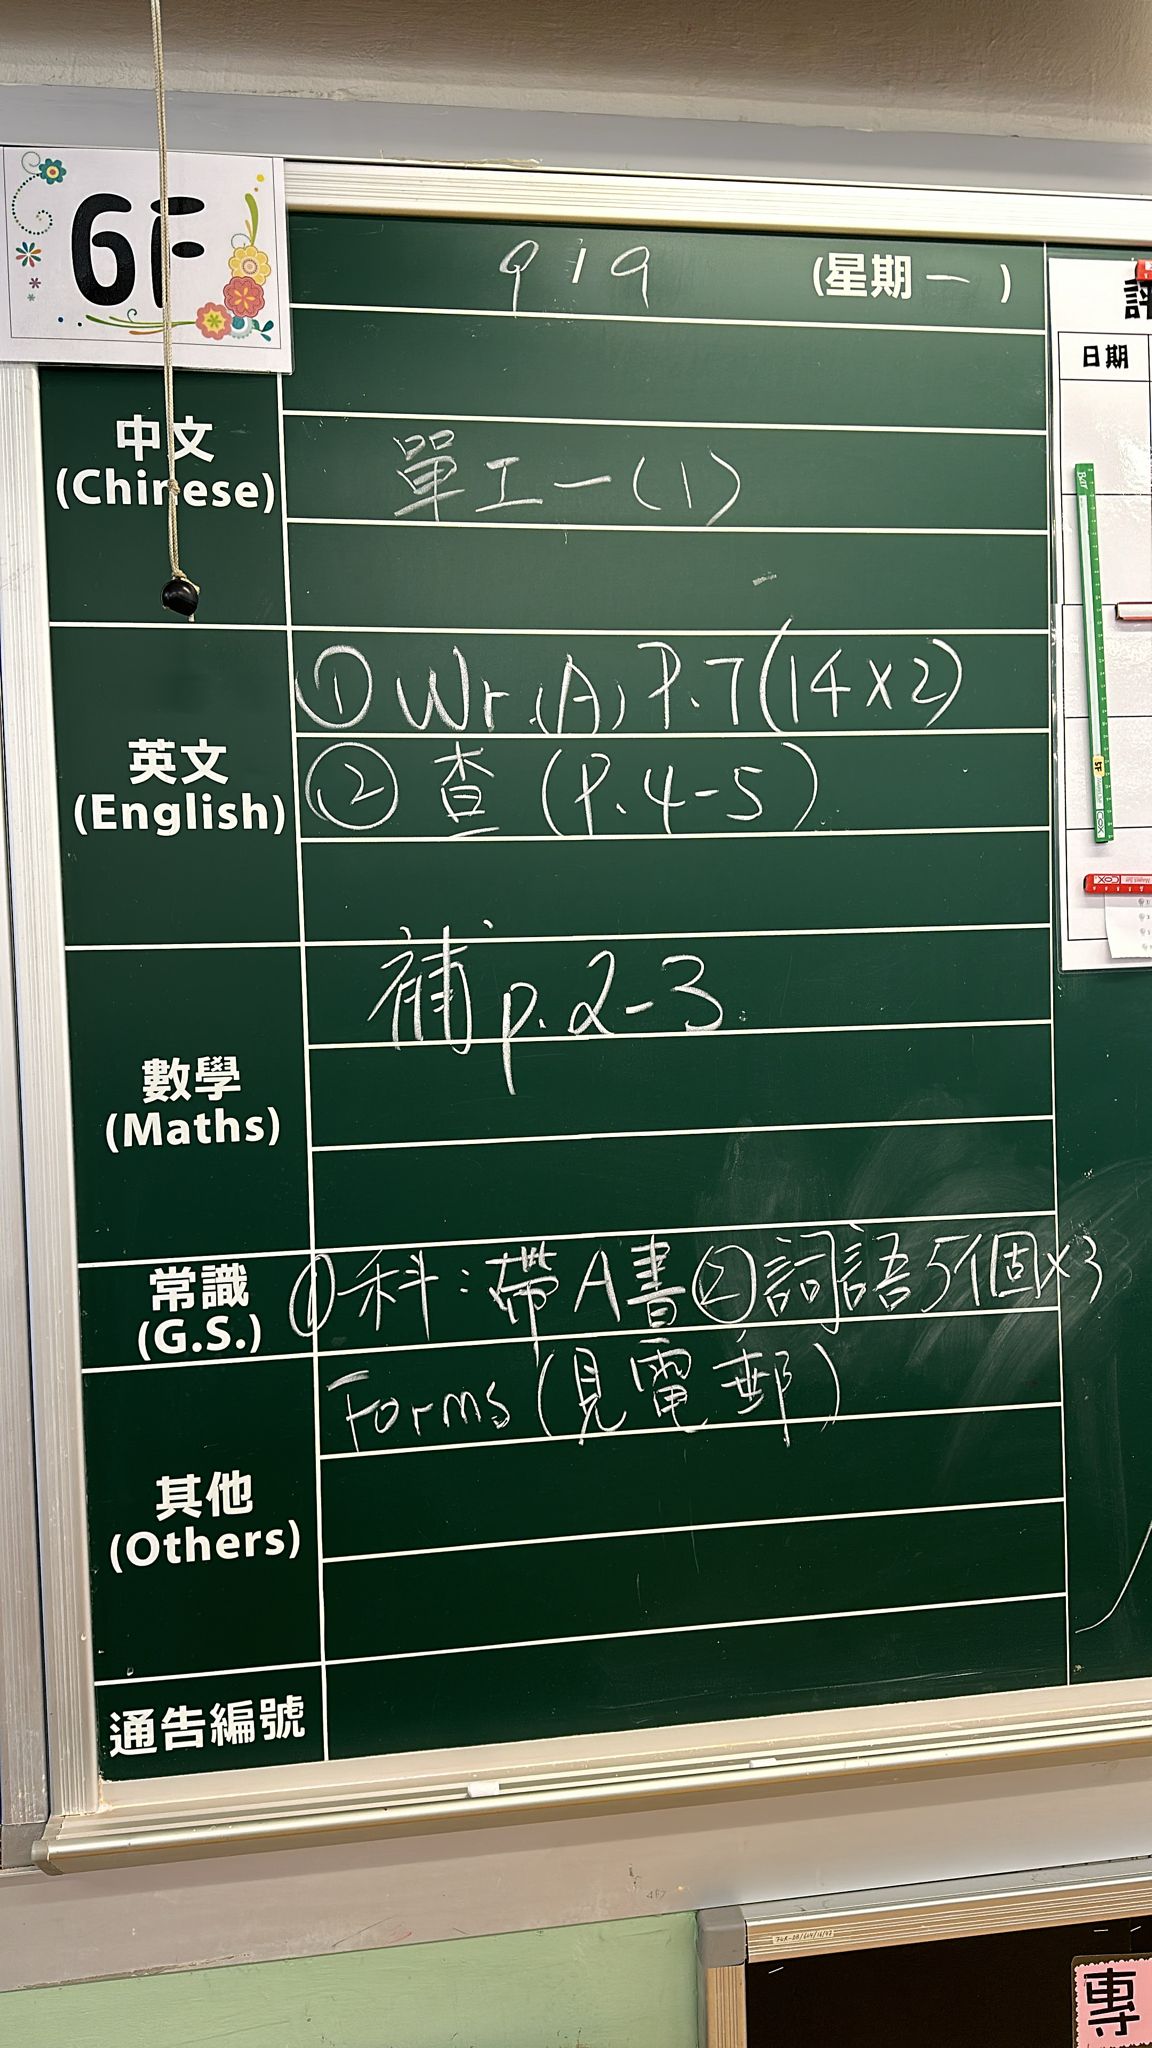 6F
9/9 (星期一)
評
日期
中文
(Chinese)
單工一(1)
英文
(English)
① Wr.(A) P.7(14×2)
② 查 (P.4-5)
數學
(Maths)
補 p.2-3
常識
(G.S.)
① 科：帶A書 ② 詞語5個×3
其他
(Others)
Forms (見電郵)
通告編號
專